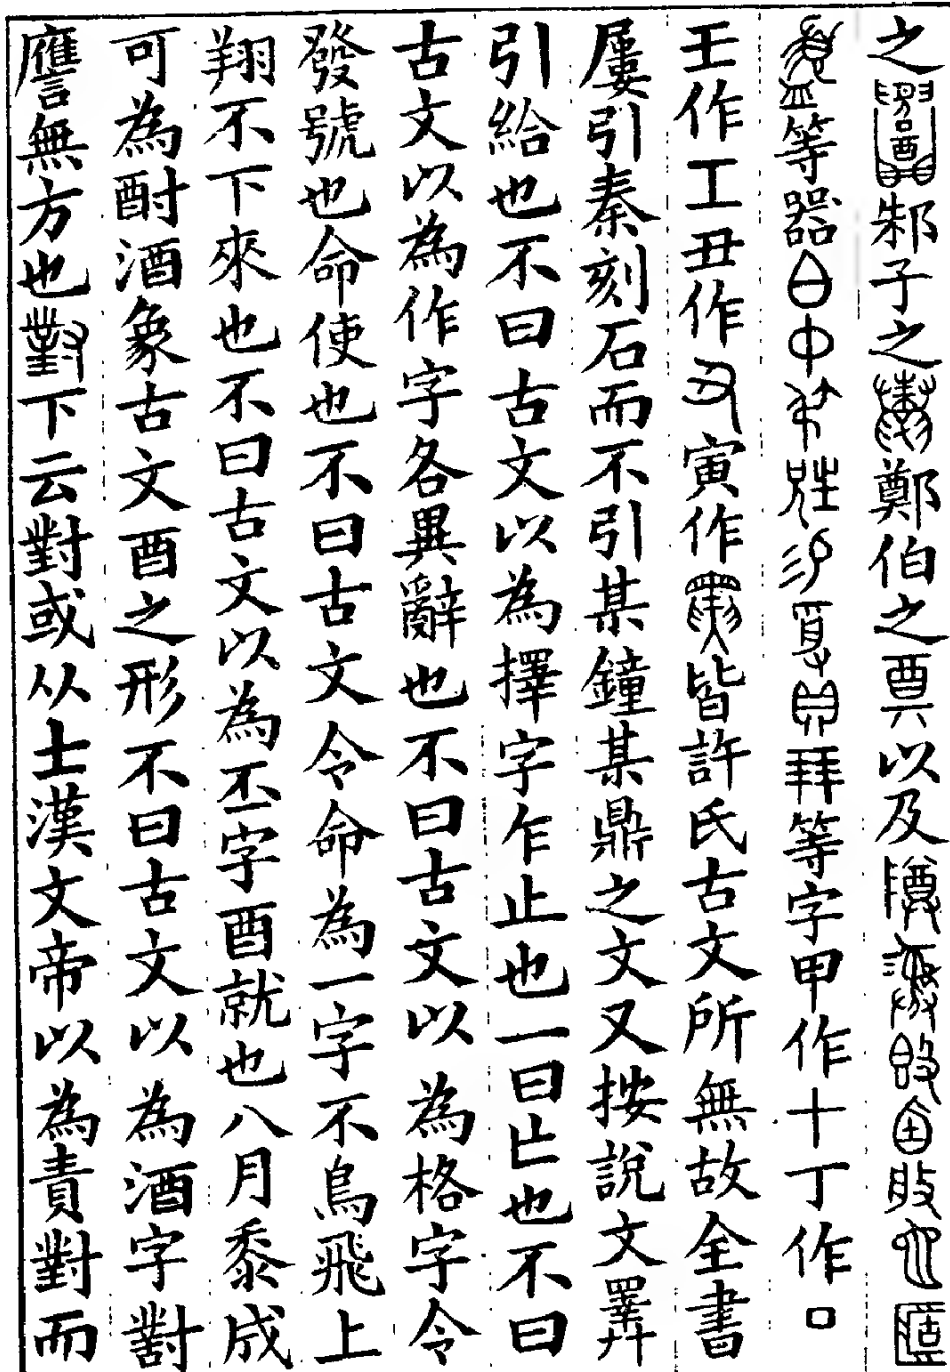 之邾子之鄭伯之奠以及
等器等字甲作十丁作口
壬作工丑作寅作皆許氏古文所無故全書
屢引秦刻石而不引某鐘某鼎之文又按說文𢍰
引給也不曰古文以為擇字乍止也一曰亡也不曰
古文以為作字各異辭也不曰古文以為格字令
發號也命使也不曰古文令命為一字不鳥飛上
翔不下來也不曰古文以為丕字酉就也八月黍成
可為酎酒象古文酉之形不曰古文以為酒字對
譍無方也對下云對或从士漢文帝以為責對而